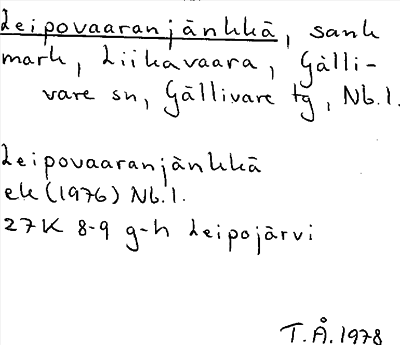 Leipovaaranjänkkä, sank
mark, Liikavaara, Gälli-
vare sn, Gällivare tg, Nb.l.
Leipovaaranjänkkä
ek (1976) Nb.l.
27K 8-9 g-h Leipojärvi
T.Å. 1978